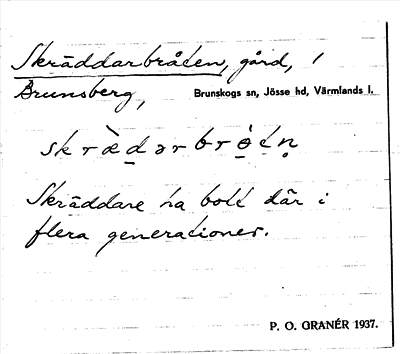 Skräddarbråten, gård, 1
Brunsberg, Brunskogs sn, Jösse hd, Värmlands l.
skræ̀dərbrò̤tn̥
Skräddare ha bott där i
flera generationer.
P. O. GRANÉR 1937.